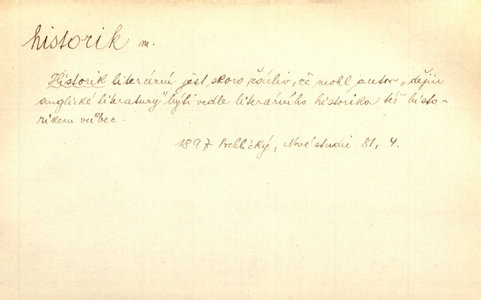 historik m.
Historik literární jest skoro žárliv, že mohl autor „dějin
anglické literatury" býti vedle literárního historika též histo-
rikem vůbec.
1897 Vrchlický, Nové studie 81, 4.